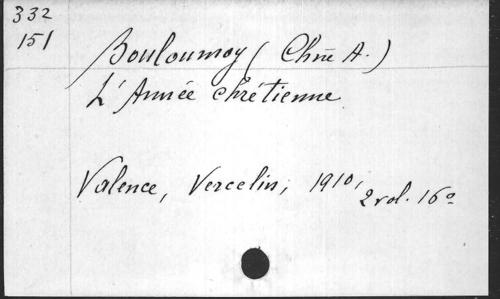 332
151
Bouloumoy (Chne A.)
L'Année chrétienne
Valence, Vercelin, 1910,
2 vol. 16°